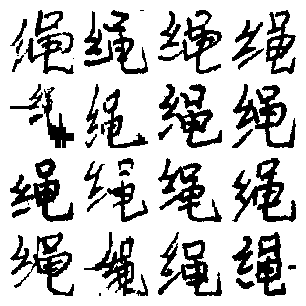 绳绳绳绳
绳绳绳绳
绳绳绳绳
绳绳绳绳